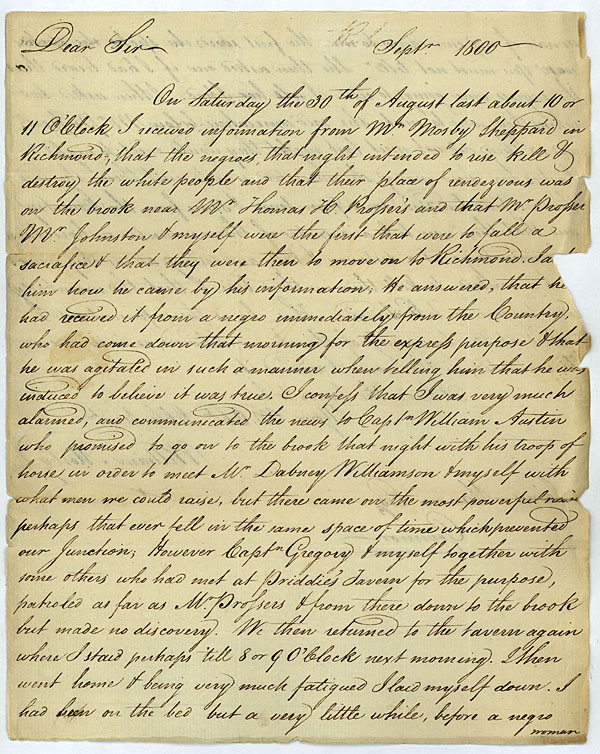 Dear Sir Septr 1800
On Saturday the 30th of August last about 10 or
11 O'Clock I received information from Mr Mosby Sheppard in
Richmond, that the negroes, that night intended to rise kill &
destroy the white people and that their place of rendezvous was
on the brook near Mr Thomas H. Prosser's and that Mr Prosser
Mr Johnston & myself were the first that were to fall a
sacrafice & that they were then to move on to Richmond. I
him how he came by his information. He answered, that he
had received it from a negro immediately from the Country.
who had come down that morning for the express purpose & that
he was agitated in such a manner when telling him that he was
induced to believe it was true. I confess that I was very much
alarmed, and communicated the news to Captn William Austin
who promised to go on to the brook that night with his troop of
horse in order to meet Mr Dabney Williamson & myself with
what men we could raise, but there came on the most powerful rain
perhaps that ever fell in the same space of time which prevented
our Junction; However Captn Gregory & myself together with
some others who had met at Priddie's Tavern for the purpose,
patroled as far as Mr Prossers & from there down to the brook
but made no discovery. We then returned to the tavern again
where I staid perhaps till 8 or 9 O'Clock next morning. I then
went home & being very much fatigued I laid myself down. I
had been on the bed but a very little while, before a negro
woman